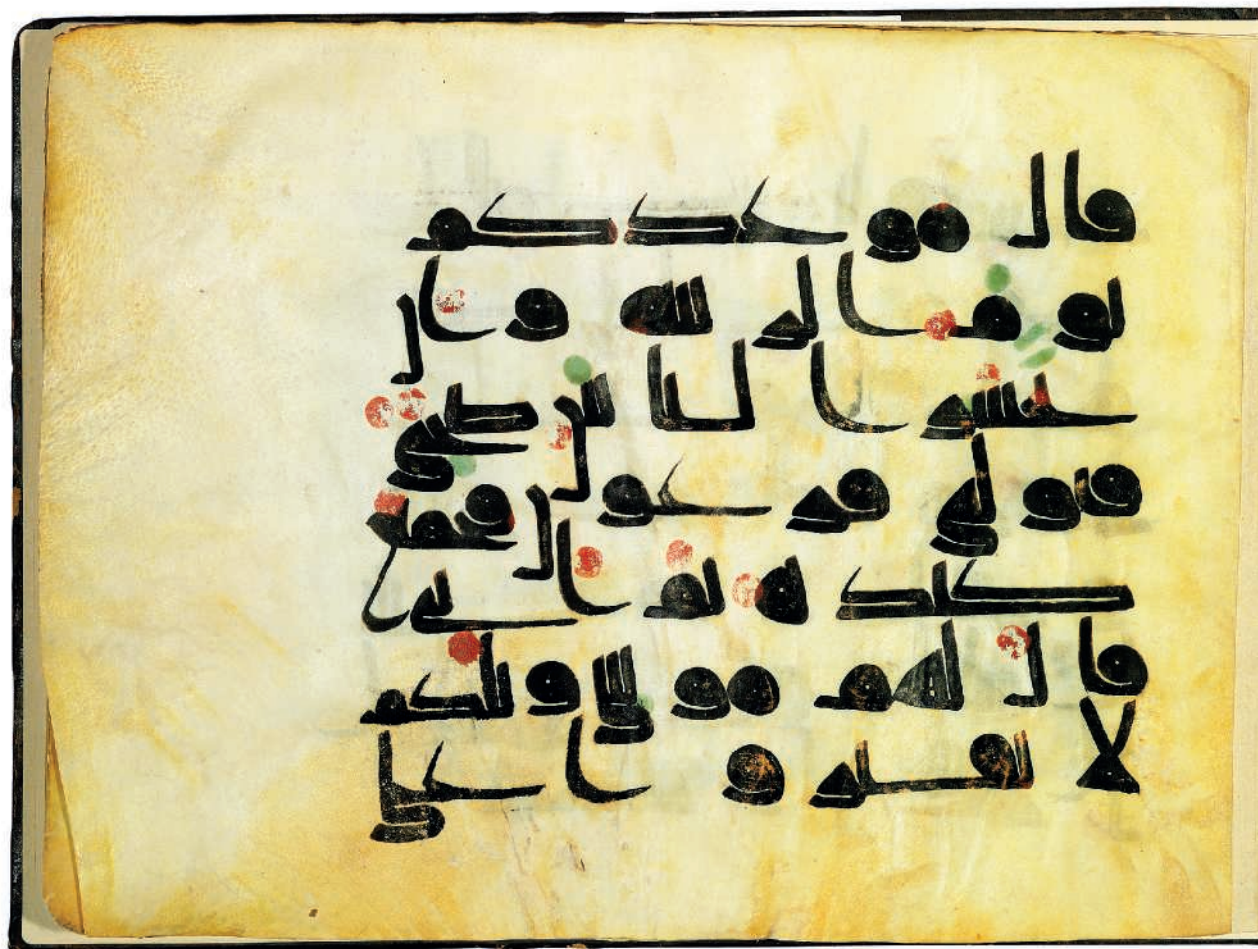 قال موعدكم
يوم الزينة وان
يحشر الناس ضحى
فتولى فرعون فجمع
كيده ثم اتى
قال لهم موسى ويلكم
لا تفتروا على